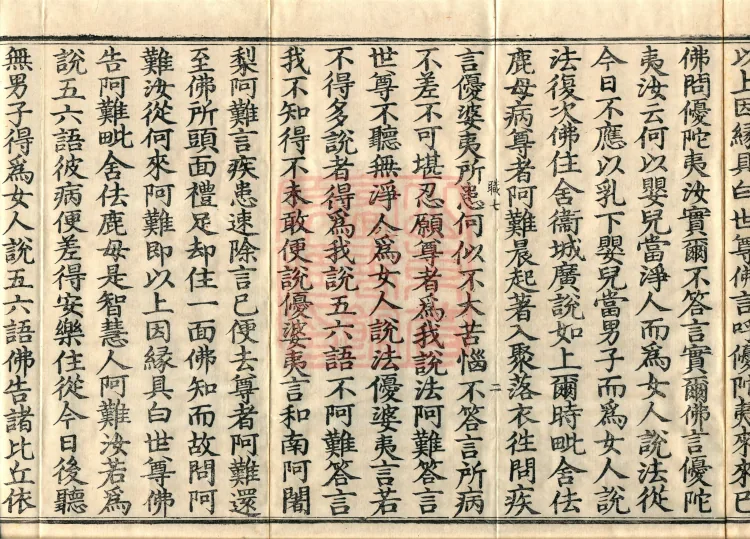 以上因縁具白世尊佛言呼優陀夷來來已
佛問優陀夷汝實爾不答言實爾佛言優陀
夷汝云何以嬰兒當淨人而爲女人說法從
今日不應以乳下嬰兒當男子而爲女人說
法復次佛住舍衞城廣說如上爾時毗舍佉
鹿母病尊者阿難晨起著入聚落衣往問疾
職七
二
言優婆夷所患何似不大苦惱不答言所病
不差不可堪忍願尊者爲我說法阿難答言
世尊不聽無淨人爲女人說法優婆夷言若
不得多說者得爲我說五六語不阿難答言
我不知得不未敢便說優婆夷言和南阿闍
梨阿難言疾患速除言已便去尊者阿難還
至佛所頭面禮足却住一面佛知而故問阿
難汝從何來阿難即以上因縁具白世尊佛
告阿難毗舍佉鹿母是智慧人阿難汝若爲
說五六語彼病便差得安樂住從今日後聽
無男子得爲女人說五六語佛告諸比丘依